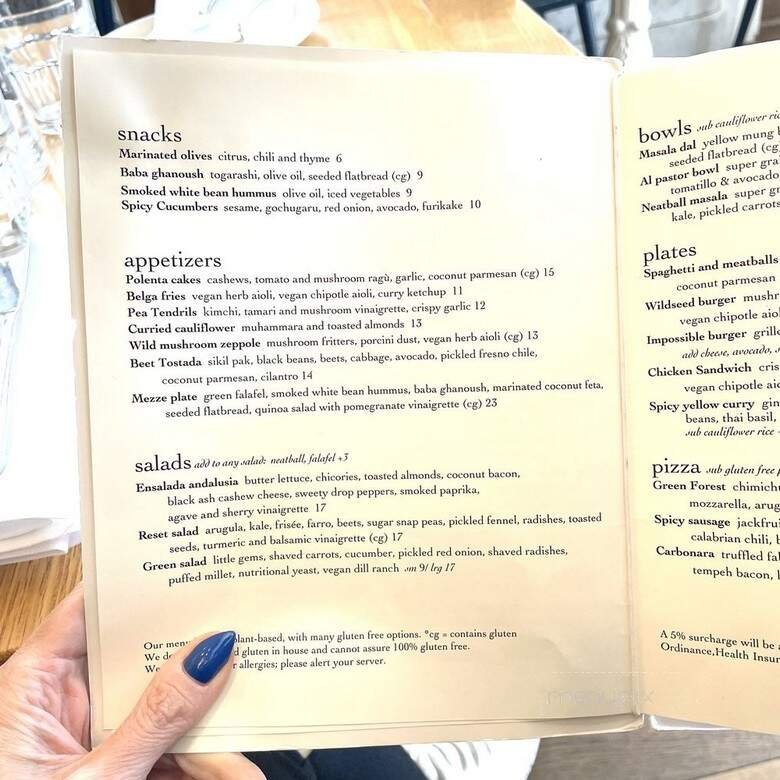 snacks
Marinated olives citrus, chili and thyme 6
Baba ghanoush togarashi, olive oil, seeded flatbread (cg) 9
Smoked white bean hummus olive oil, iced vegetables 9
Spicy Cucumbers sesame, gochugaru, red onion, avocado, furikake 10
appetizers
Polenta cakes cashews, tomato and mushroom ragù, garlic, coconut parmesan (cg) 15
Belga fries vegan herb aioli, vegan chipotle aioli, curry ketchup 11
Pea Tendrils kimchi, tamari and mushroom vinaigrette, crispy garlic 12
Curried cauliflower muhammara and toasted almonds 13
Wild mushroom zeppole mushroom fritters, porcini dust, vegan herb aioli (cg) 13
Beet Tostada sikil pak, black beans, beets, cabbage, avocado, pickled fresno chile,
coconut parmesan, cilantro 14
Mezze plate green falafel, smoked white bean hummus, baba ghanoush, marinated coconut feta,
seeded flatbread, quinoa salad with pomegranate vinaigrette (cg) 23
salads add to any salad: neatball, falafel +3
Ensalada andalusia butter lettuce, chicories, toasted almonds, coconut bacon,
black ash cashew cheese, sweety drop peppers, smoked paprika,
agave and sherry vinaigrette 17
Reset salad arugula, kale, frisée, farro, beets, sugar snap peas, pickled fennel, radishes, toasted
seeds, turmeric and balsamic vinaigrette (cg) 17
Green salad little gems, shaved carrots, cucumber, pickled red onion, shaved radishes,
puffed millet, nutritional yeast, vegan dill ranch sm 9/ lrg 17
Our menu plant-based, with many gluten free options. *cg = contains gluten
We gluten in house and cannot assure 100% gluten free.
We allergies; please alert your server.
bowls sub cauliflower
Masala dal yellow mung
seeded flatbread (cg
Al pastor bowl super
tomatillo & avocado
Neatball masala super
kale, pickled carrots
plates
Spaghetti and meatballs
coconut parmesan
Wildseed burger
vegan chipotle
Impossible burger
add cheese, avocado,
Chicken Sandwich
vegan chipotle
Spicy yellow curry
beans, thai basil,
sub cauliflower rice
pizza sub gluten free
Green Forest
mozzarella,
Spicy sausage
calabrian chili,
Carbonara truffled
tempeh bacon,
A 5% surcharge will be
Ordinance, Health
menupix